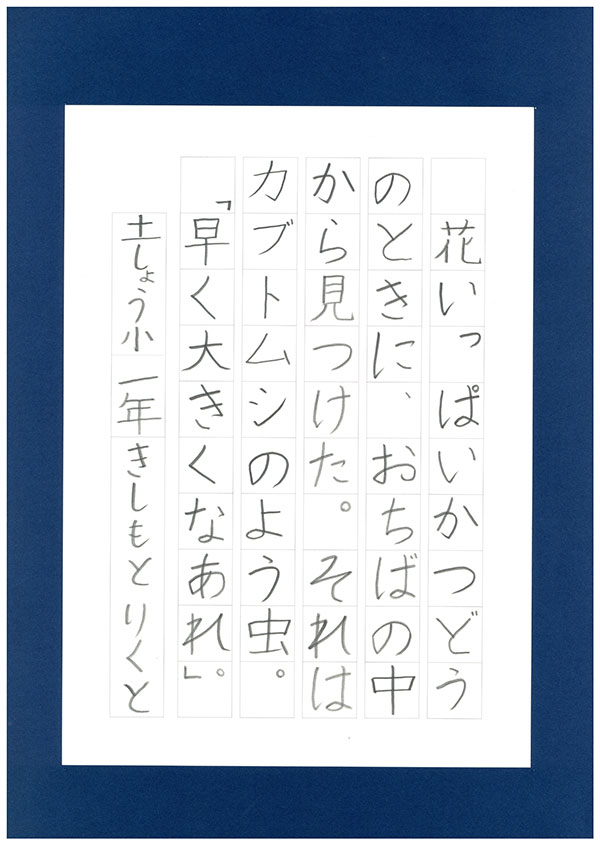 花いっぱいかつどう
のときに、おちばの中
から見つけた。それは
カブトムシのよう虫。
「早く大きくなあれ。」
土しょう小 一年 きしもと りくと